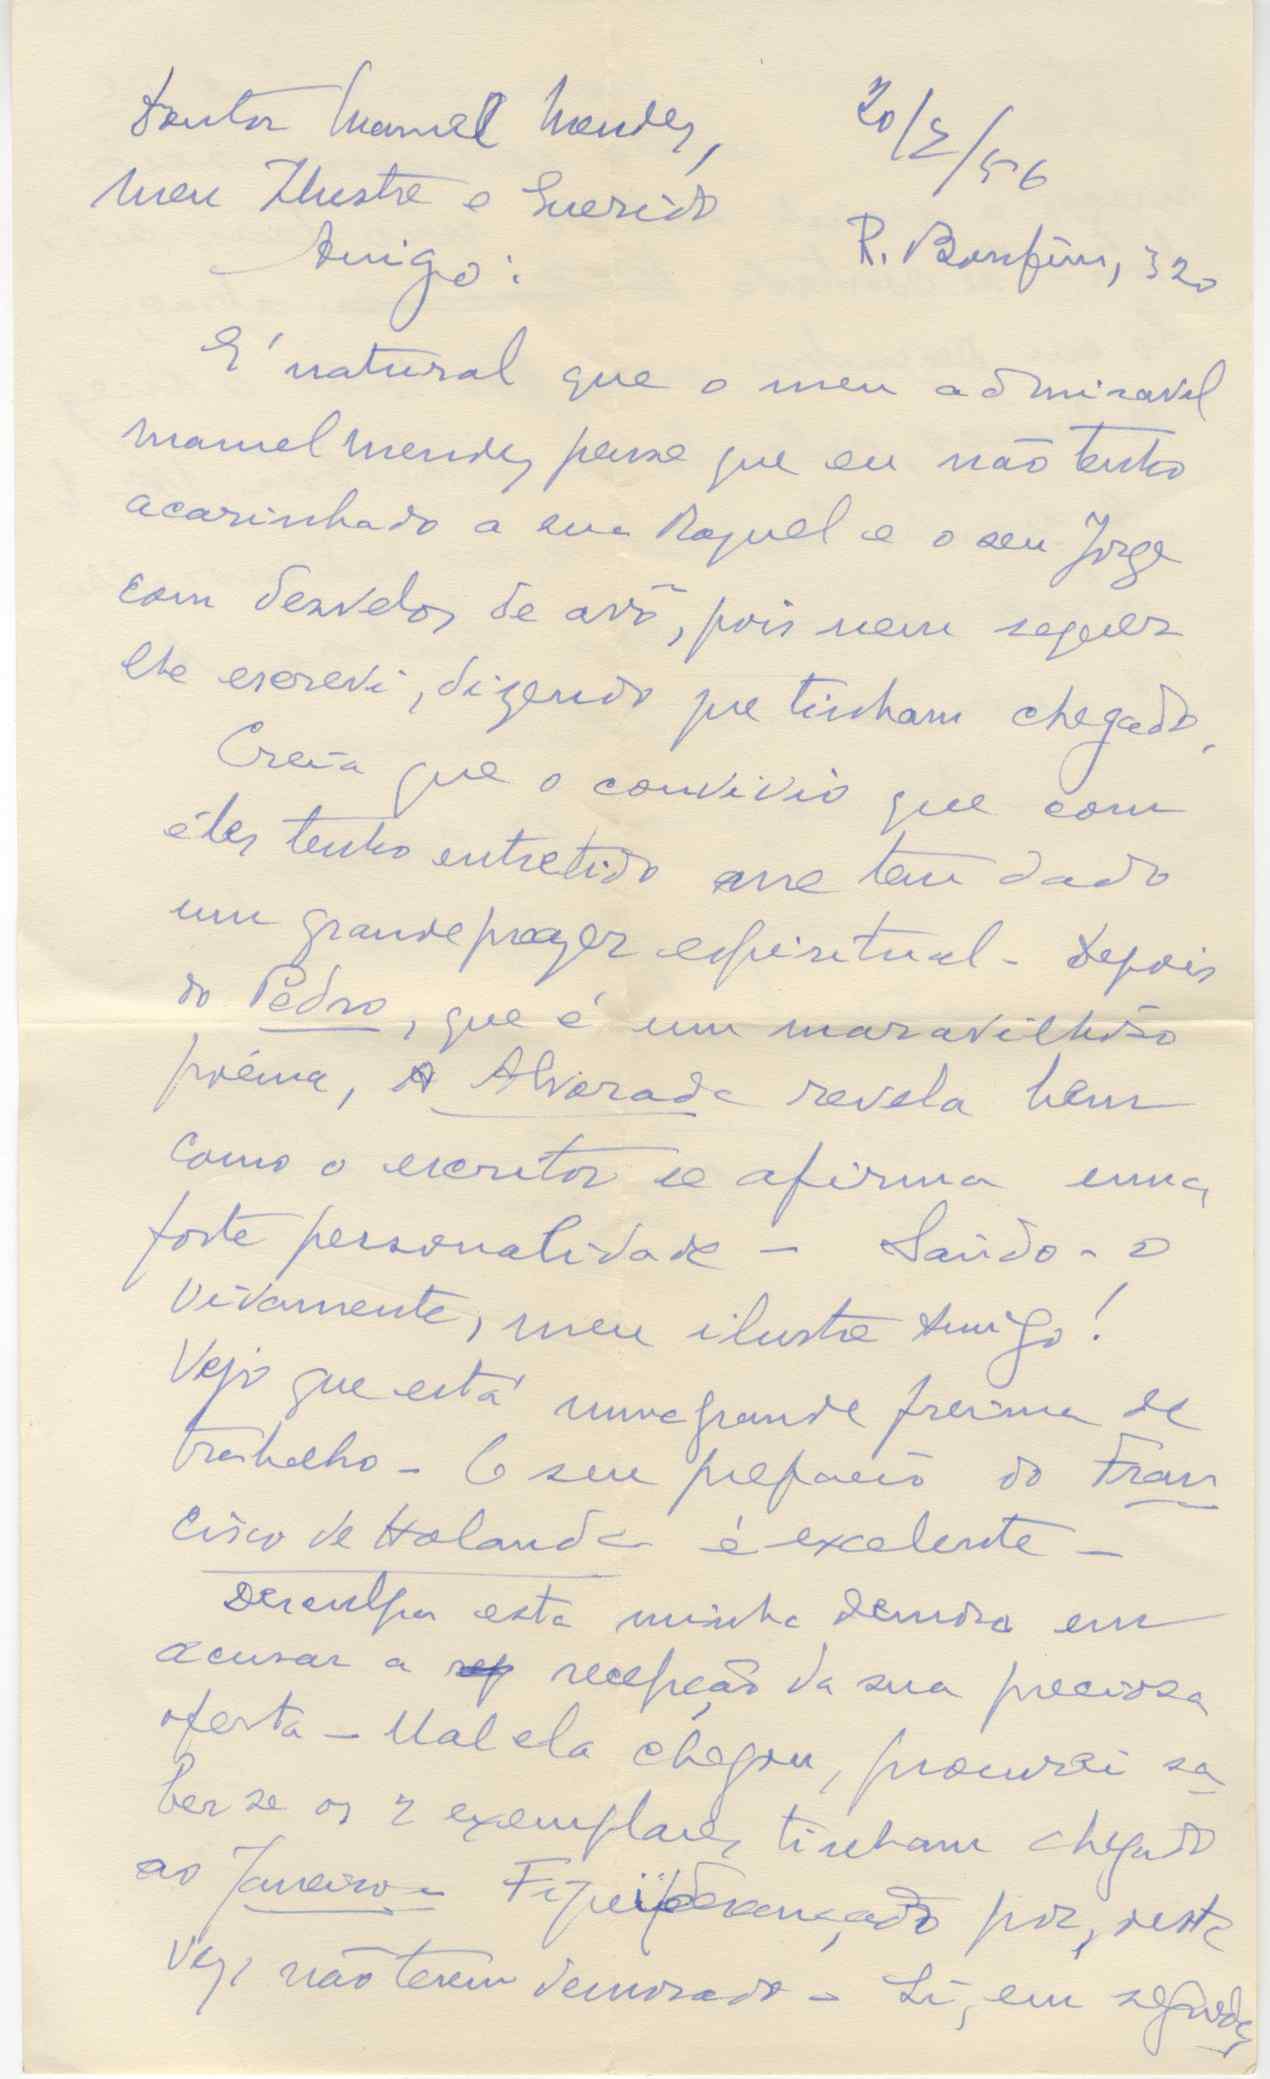 Doutor Manuel Mendes,
20/5/56
Meu Ilustre e Querido
Amigo:
R. Bonfim, 320
E' natural que o meu admiravel
Manuel Mendes pense que eu não tenho
acarinhado a sua Raquel e o seu Jorge
com desvelos de avô, pois nem sequer
lhe escrevi, dizendo que tinham chegado.
Creia que o convivio que com
êles tenho entretido me tem dado
um grande prazer espiritual - Depois
do Pedro, que é um maravilhoso
poéma, A Alvorada revela bem
como o escritor se afirma uma
forte personalidade - Saúdo-o
vivamente, meu ilustre Amigo!
Vejo que está numa grande freima de
trabalho - O seu prefacio do Fran
cisco de Holanda é excelente -
Desculpa esta minha demora em
acusar a recepção da sua preciosa
oferta - Mal ela chegou, procurei sa
ber se os 2 exemplares tinham chegado
ao Janeiro - Fiquei descançado por, desta
vez, não terem demorado - Li, em seguida,